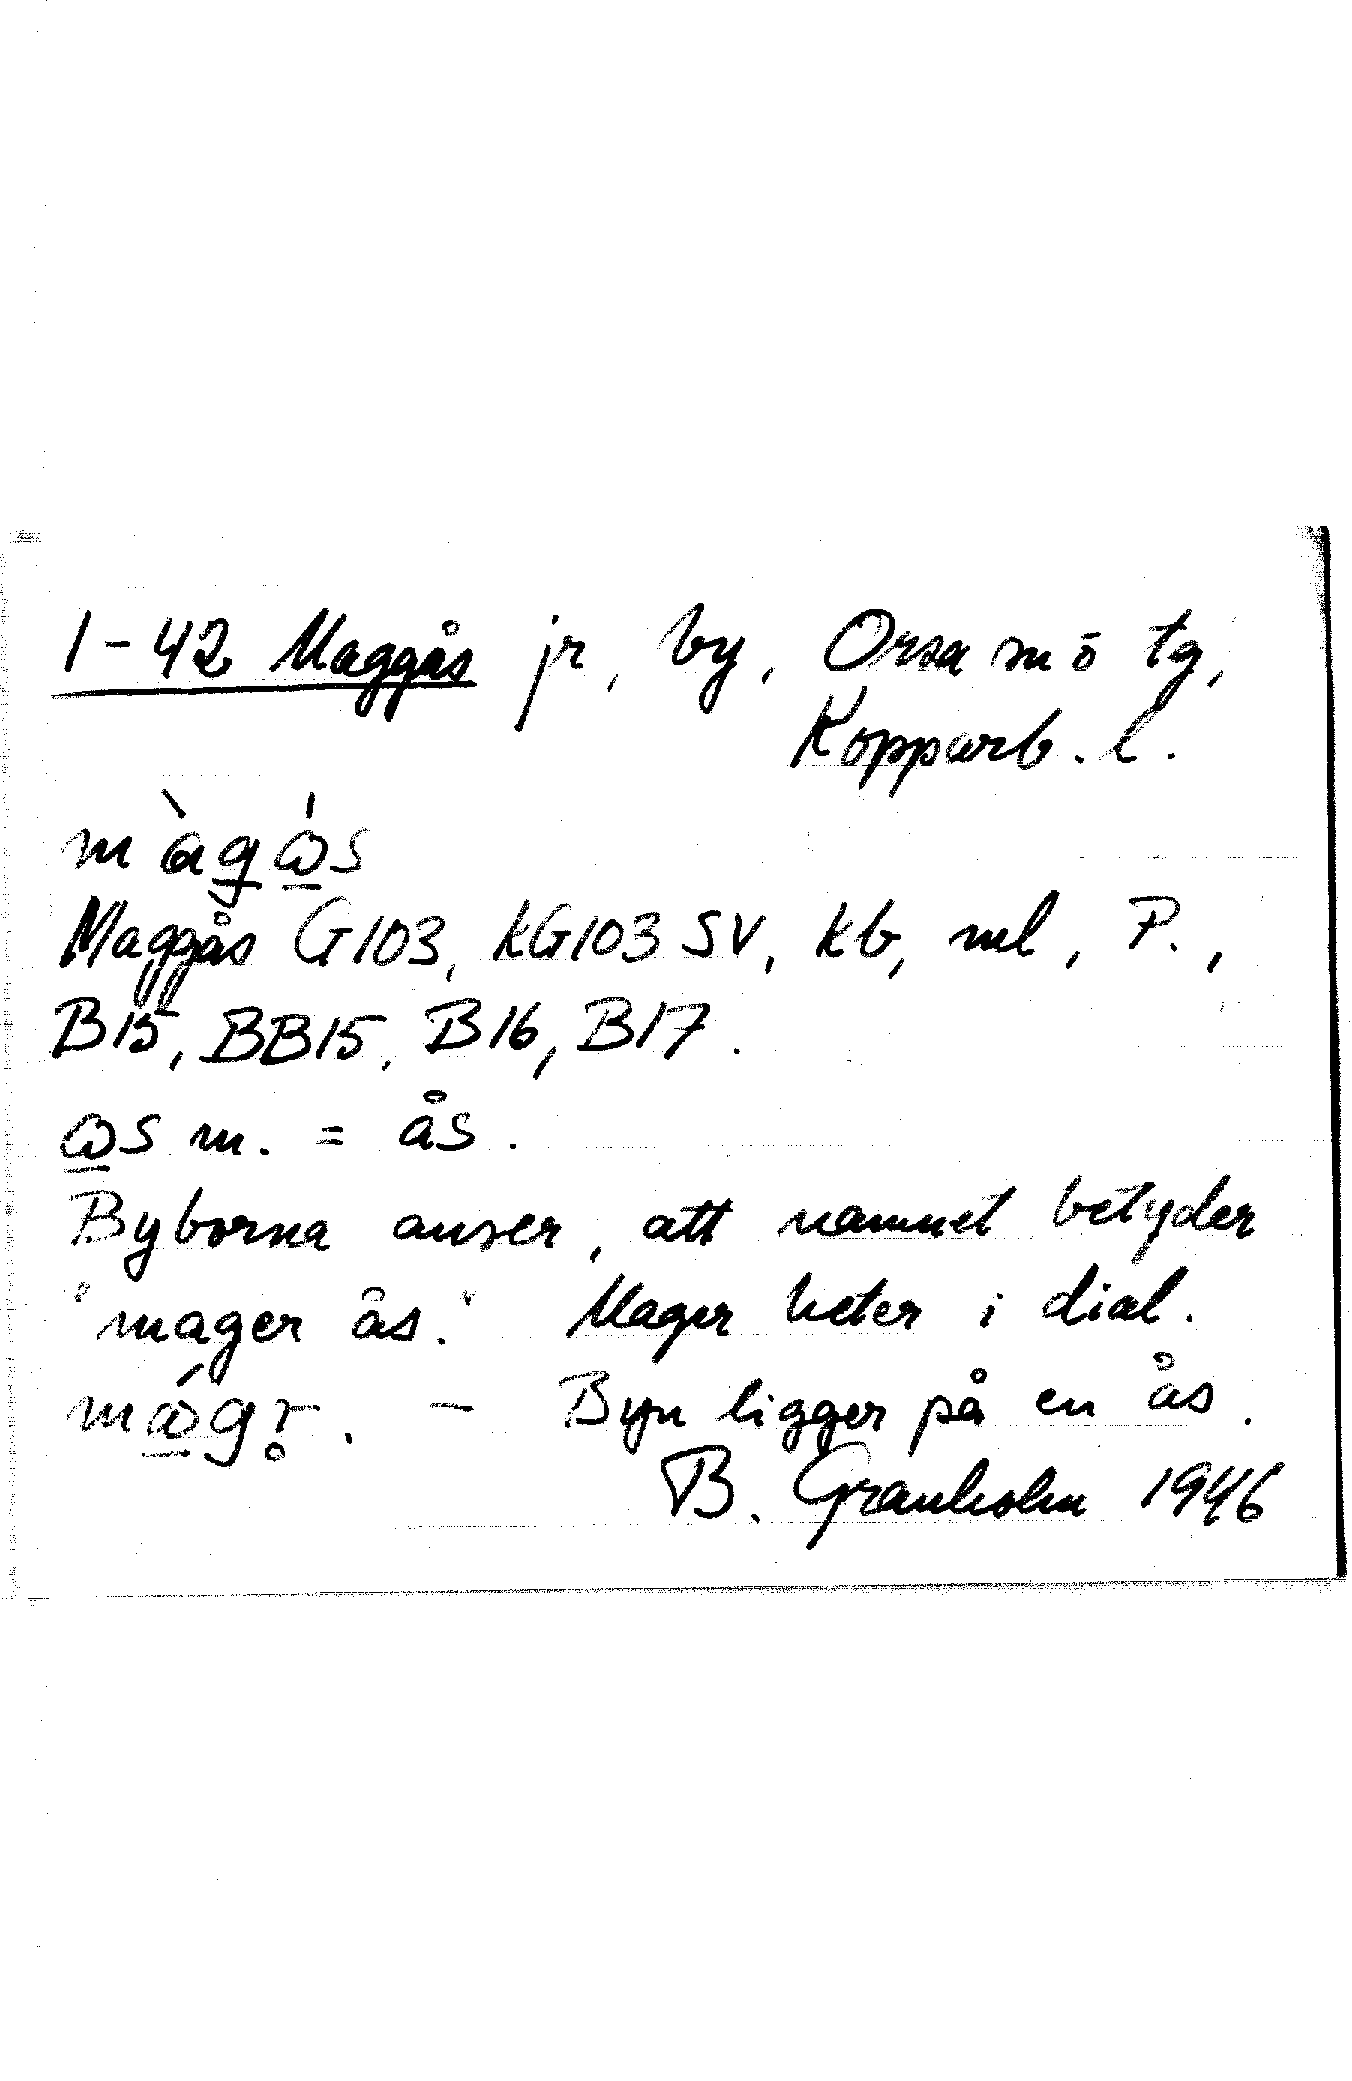 1-42 Maggås jr, by, Orsa sn ö tg,
Kopparb. l.
màg̲ώ̲s
Maggås G103, KG103 SV, Kb, ml, P.,
B15, BB15, B16, B17.
ω̲s m. = ås.
Byborna anser, att namnet betyder
"mager ås." Mager heter i dial.
mώ̲gr̥. - Byn ligger på en ås.
B. Granholm 1946